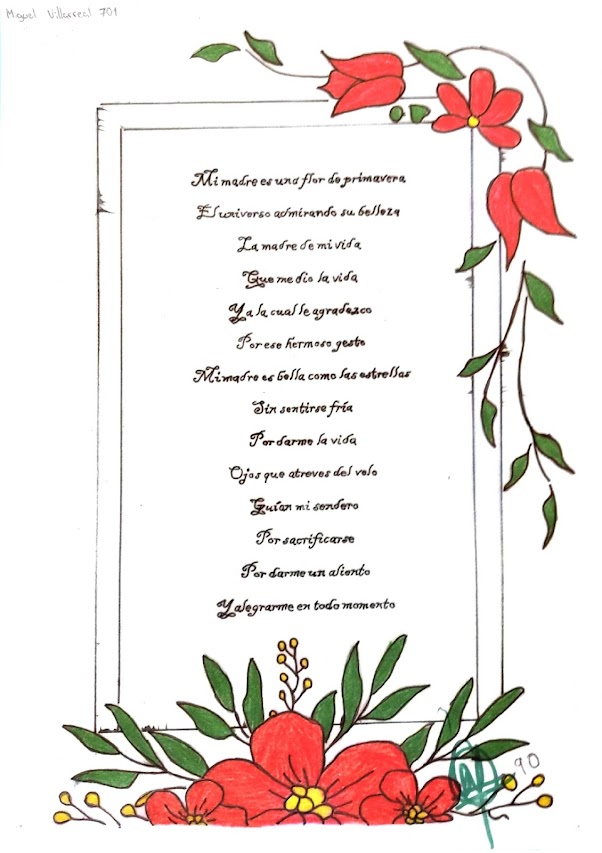 Miguel Villarreal 701
Mi madre es una flor de primavera
El universo admirando su belleza
La madre de mi vida
Que me dio la vida
Y a la cual le agradezco
Por ese hermoso gesto
Mi madre es bella como las estrellas
Sin sentirse fría
Por darme la vida
Ojos que atreves del velo
Guían mi sendero
Por sacrificarse
Por darme un aliento
Y alegrarme en todo momento
90